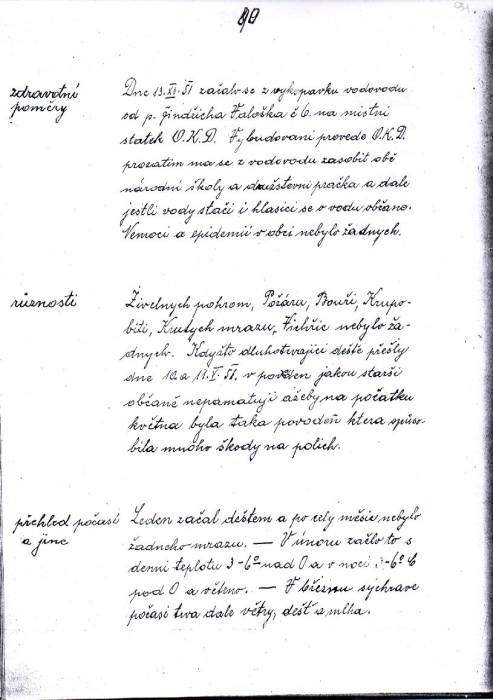 80
zdravotní
poměry
Dne 13.XI.51 začalo se z vykopavku vodovodu
od p. Jindřicha Faloška č 6. na mistni
statek O.K.D. Vybudovani provede O.K.D.
prozatim ma se z vodovodu zasobit obě
národní školy a družstevni pračka a dale
jestli vody stači i hlasici se o vodu občano.
Nemoci a epidemii v obci nebylo žadnych.
různosti
Živelnych pohrom, Požáru, Bouři, Krupo-
biti, Krutych mrazu, Vichřic nebylo ža-
dnych. Kdyžto dluhotrvajici deště přešly
dne 10. a 11.V.51. v povoden jakou starši
občaně nepamatuji ažeby na počatku
května byla taka povodeň ktera způso-
bila mnoho škody na polich.
přehled počasí
a jine
Leden začal deštem a po cely měsic nebylo
žadneho mrazu. — V únoru začlo to s
denni teplotu 3-6° nad 0 a v noci 3-6° C
pod 0 a větrno. — V březnu sychrave
počasi trva dale větry, dešť a mlha.